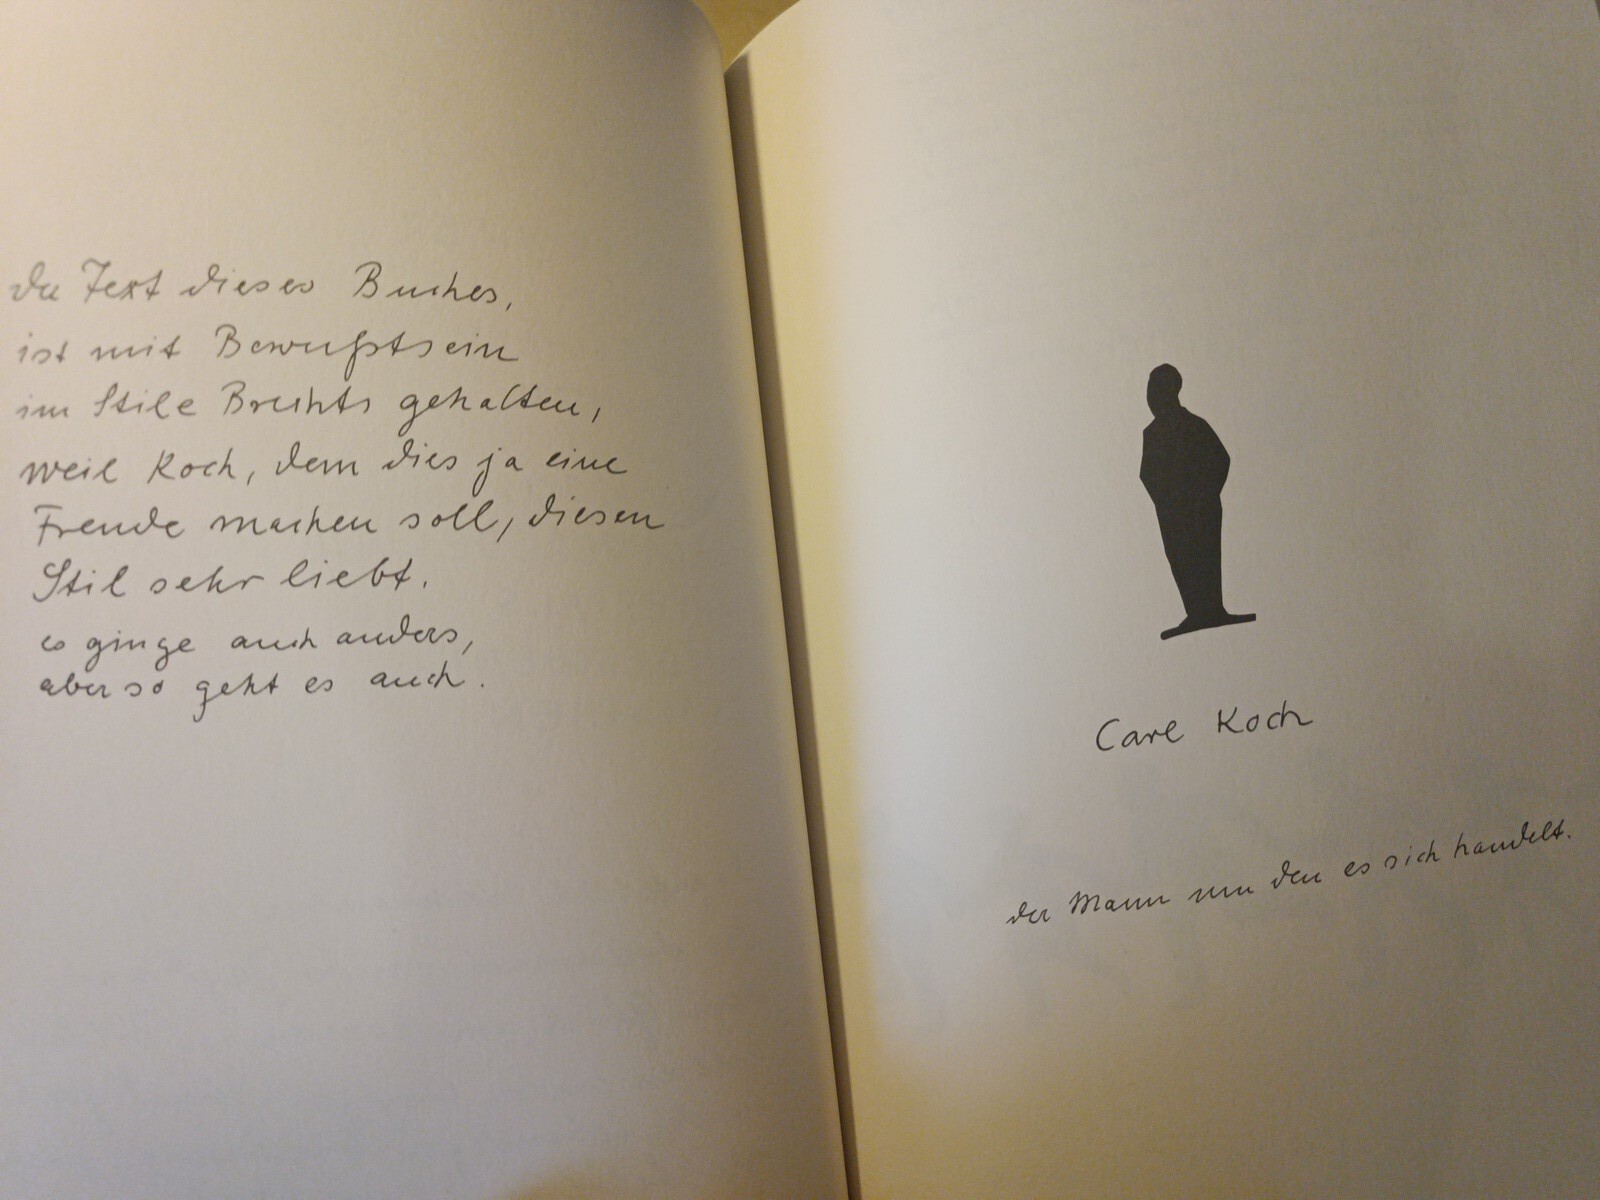 der Text dieses Buches,
ist mit Bewußtsein
im Stile Brechts gehalten,
weil Koch, dem dies ja eine
Freude machen soll, diesen
Stil sehr liebt.
es ginge auch anders,
aber so geht es auch.
Carl Koch
der Mann um den es sich handelt.